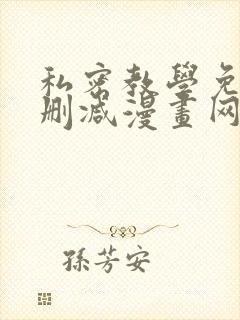 私密教學免
删减漫畫网
孫芳安